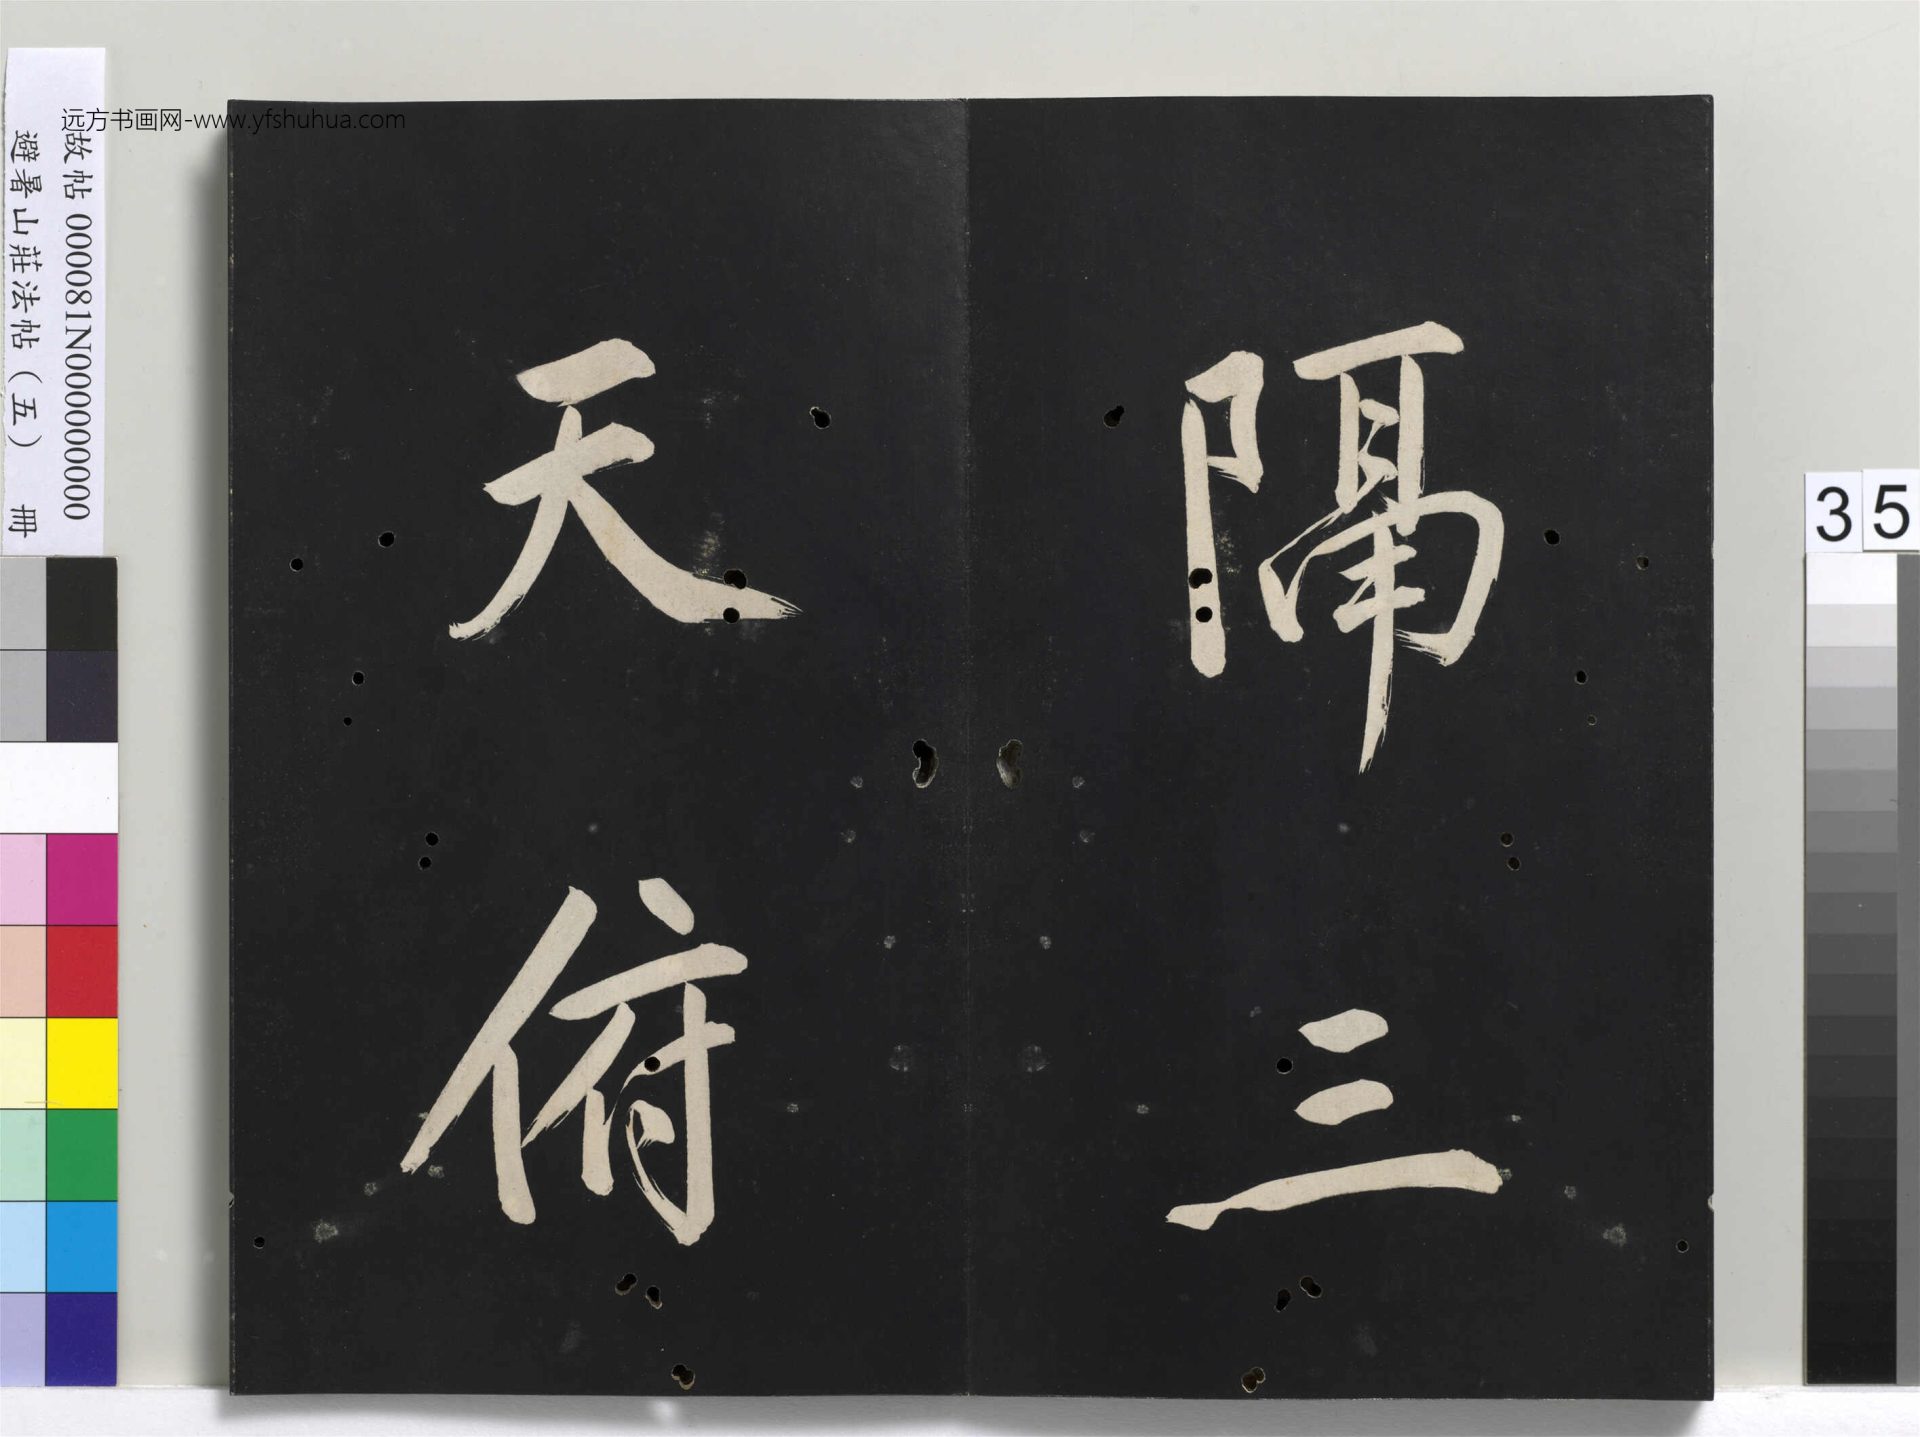 远方书画网-www.yfshuhua.com
故帖 000081N000000000
避暑山莊法帖（五） 冊
隔三
天俯
35